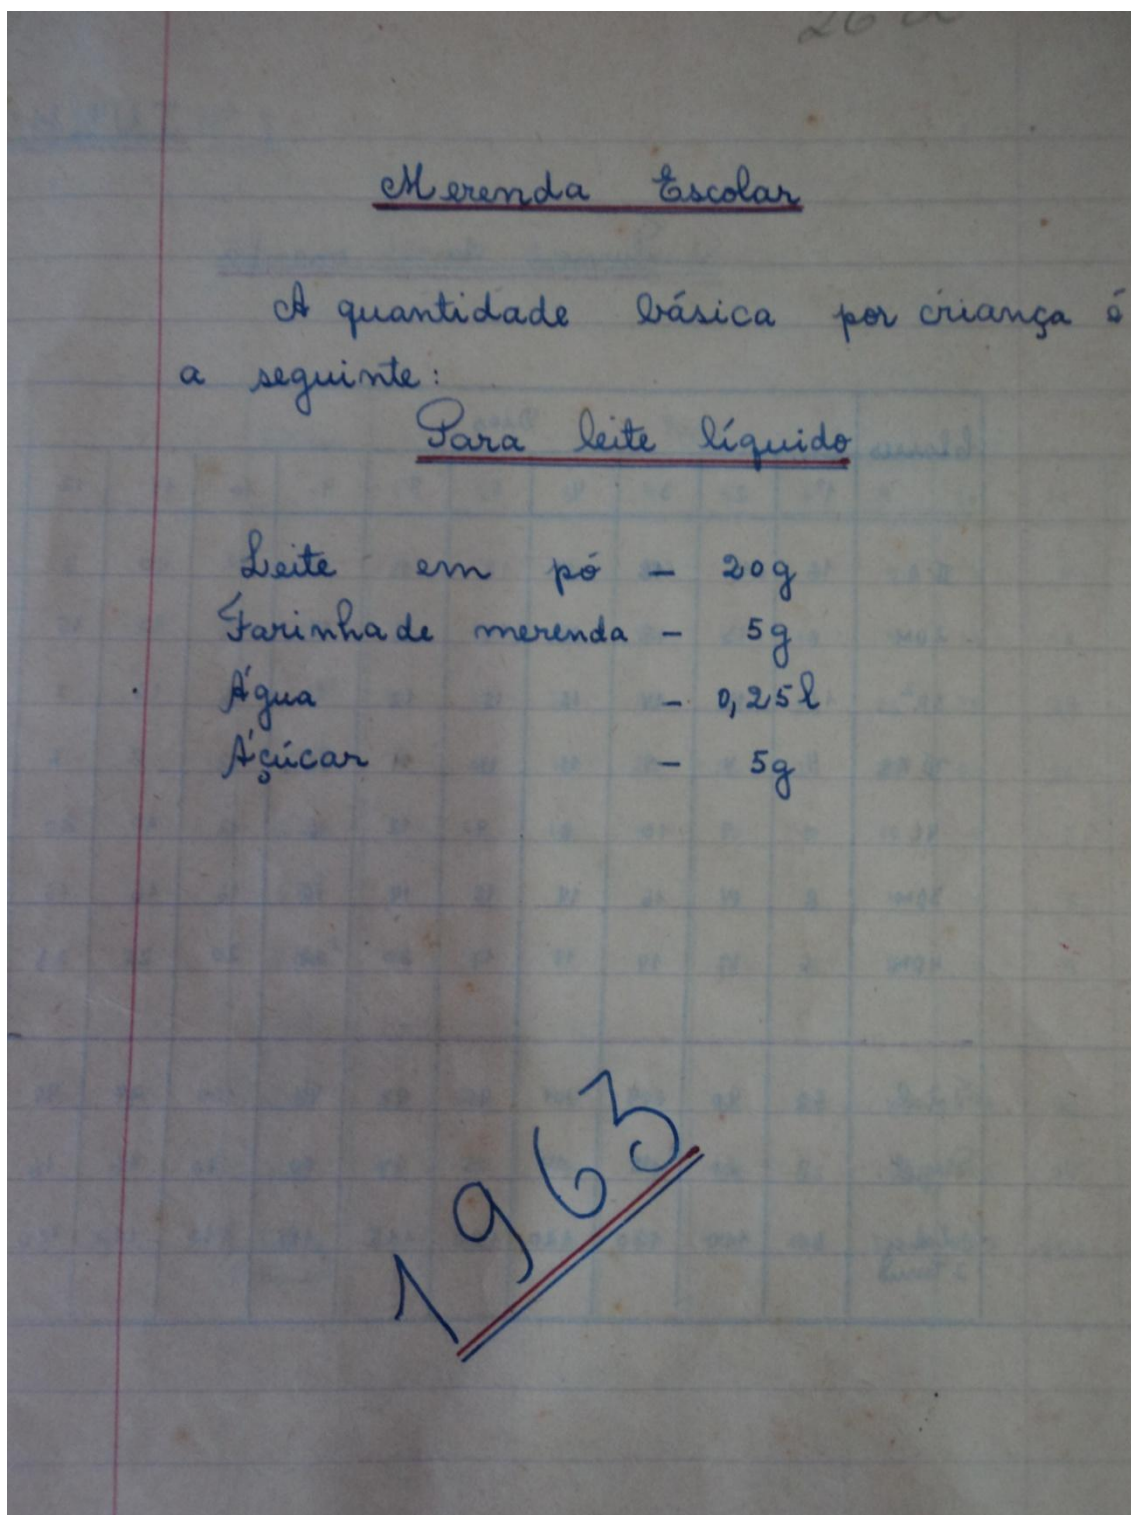 Merenda Escolar
A quantidade básica por criança é
a seguinte:
Para leite líquido
Leite em pó - 20g
Farinha de merenda - 5g
Água - 0,25l
Áçúcar - 5g
1963